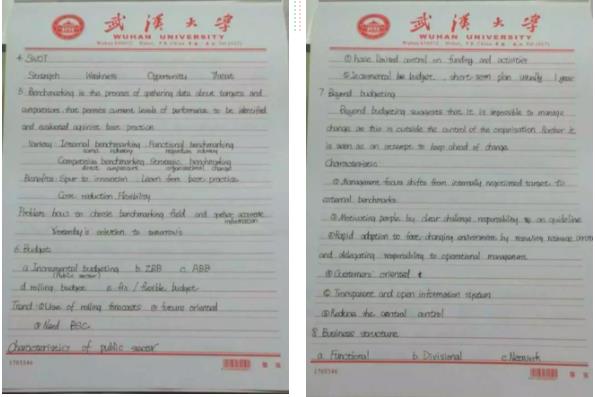 武漢大學
WUHAN UNIVERSITY
4. SWOT
Strength Weakness Opportunity Threat
5. Benchmarking is the process of gathering data about targets and
comparators, that permits current levels of performance to be identified
and evaluated against best practice
Variety: Internal benchmarking Functional benchmarking
same industry
Competitive benchmarking Strategic benchmarking
direct competitors organisational change
Benefits: Spur to innovation Learn from best practice
Cost reduction Flexibility
Problem: how to choose benchmarking field and gather accurate
information
Yesterday's solution to tomorrow's
6. Budget
a. Incremental budgeting b. ZBB c. ABB
(Public sector)
d. rolling budget e. fix / flexible budget
Trend: ① Use of rolling forecasts ② future oriented
③ Need BSC
Characteristics of public sector
1703346
武漢大學
WUHAN UNIVERSITY
① have limited control on funding and activities
② Incremental budget, short-term plan usually 1 year
7. Beyond budgeting
Beyond budgeting suggests that it is impossible to manage
change as this is outside the control of the organisation. Rather it
is seen as an attempt to keep ahead of change.
Characteristics:
① Management focus shifts from internally negotiated target to
external benchmarks
② Motivating people by clear challenge, responsibility on guideline
③ Rapid adaption to fast changing environment by
and delegating responsibility to operational management
④ Customers' oriented
⑤ Transparent and open information system
⑥ Reduce the central control
8. Business structure
a. Functional b. Divisional c. Network
1703346